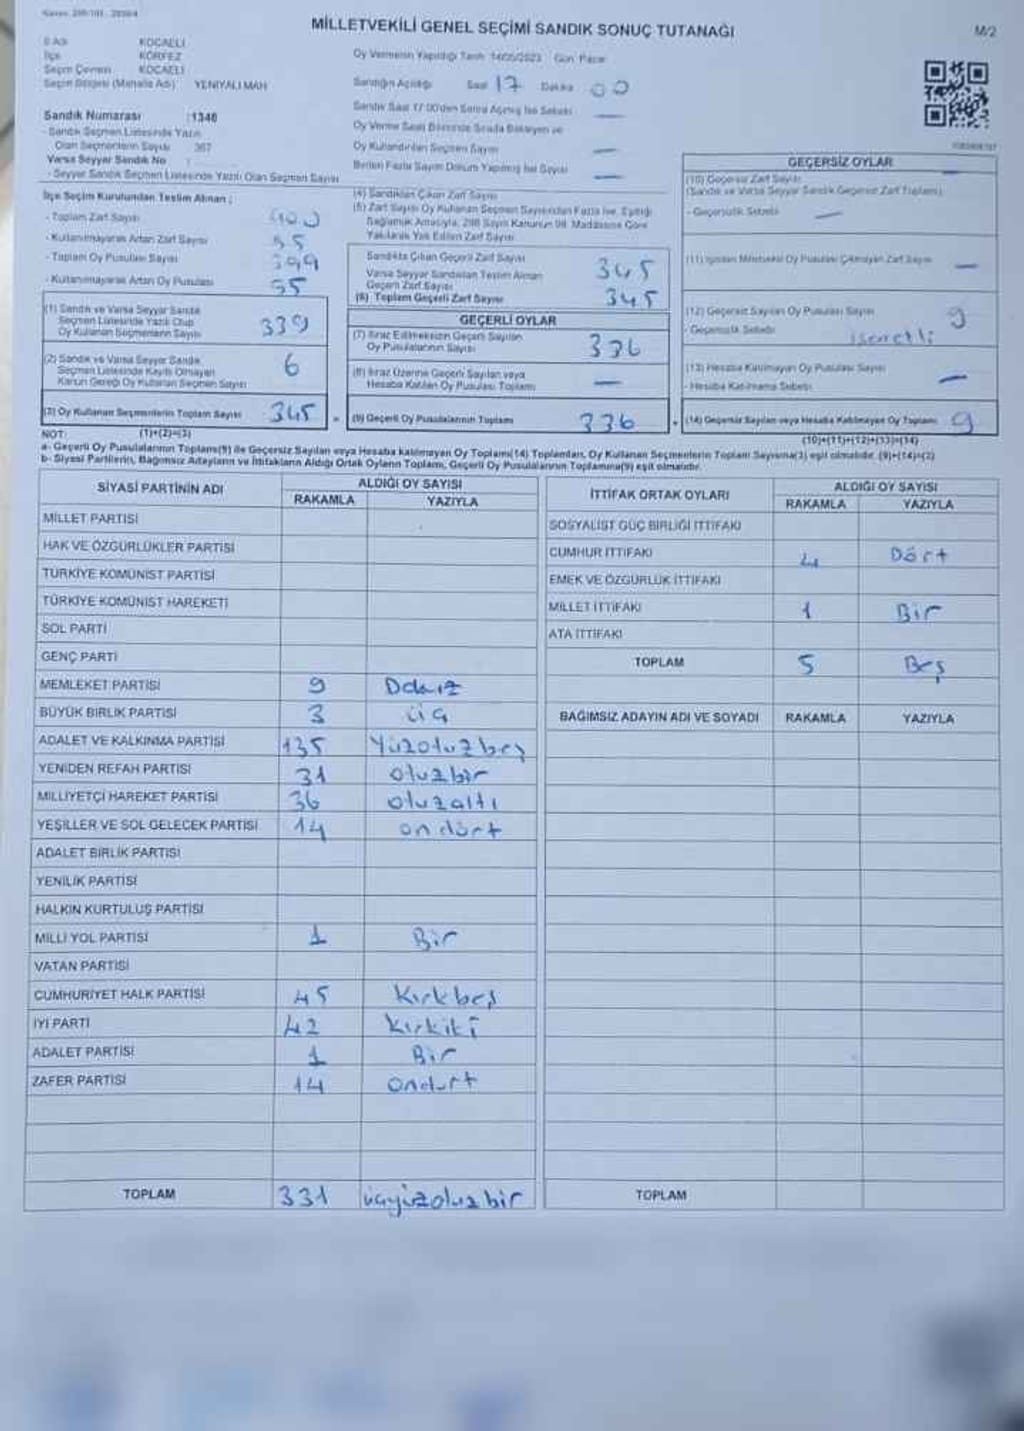 MİLLETVEKİLİ GENEL SEÇİMİ SANDIK SONUÇ TUTANAĞI
M/2
İl Adı KOCAELİ
İlçe KÖRFEZ
Seçim Çevresi KOCAELİ
Seçim Bölgesi (Mahalle Adı) YENİYALI MAH
Oy Vermenin Yapıldığı Tarih 14/05/2023 Gün Pazar
Sandığın Açıldığı Saat 17 Dakika 00
Sandık Saat 17:00'den Sonra Açılmış İse Sebebi —
Oy Kullandırılan Seçmen Sayısı —
Birden Fazla Sayım Döküm Yapılmış İse Sayısı —
Sandık Numarası :1348
- Sandık Seçmen Listesinde Yazılı
Olan Seçmenlerin Sayısı 367
Varsa Seyyar Sandık No :
- Seyyar Sandık Seçmen Listesinde Yazılı Olan Seçmen Sayısı
İlçe Seçim Kurulundan Teslim Alınan ;
- Toplam Zarf Sayısı 400
- Kullanılmayarak Artan Zarf Sayısı 55
- Toplam Oy Pusulası Sayısı 399
- Kullanılmayarak Artan Oy Pusulası 55
(1) Sandık ve Varsa Seyyar Sandık
Seçmen Listesinde Yazılı Olup
Oy Kullanan Seçmenlerin Sayısı 339
(2) Sandık ve Varsa Seyyar Sandık
Seçmen Listesinde Kayıtlı Olmayan
Kanun Gereği Oy Kullanan Seçmen Sayısı 6
(3) Oy Kullanan Seçmenlerin Toplam Sayısı 345
(1)+(2)=(3)
(4) Sandıktan Çıkan Zarf Sayısı
(5) Zarf Sayısı Oy Kullanan Seçmen Sayısından Fazla İse, Eşitliği
Sağlamak Amacıyla, 298 Sayılı Kanunun 98. Maddesine Göre
Yakılarak Yok Edilen Zarf Sayısı
Sandıkta Çıkan Geçerli Zarf Sayısı 345
Varsa Seyyar Sandıktan Teslim Alınan
Geçerli Zarf Sayısı
(6) Toplam Geçerli Zarf Sayısı 345
GEÇERLİ OYLAR
(7) İtiraz Edilmeksizin Geçerli Sayılan
Oy Pusulalarının Sayısı 336
(8) İtiraz Üzerine Geçerli Sayılan veya
Hesaba Katılan Oy Pusulası Toplamı —
(9) Geçerli Oy Pusulalarının Toplamı 336
GEÇERSİZ OYLAR
(10) Geçersiz Zarf Sayısı
(Sandık ve Varsa Seyyar Sandık Geçersiz Zarf Toplamı)
- Geçersizlik Sebebi —
(11) İçinden Milletvekili Oy Pusulası Çıkmayan Zarf Sayısı —
(12) Geçersiz Sayılan Oy Pusulası Sayısı 9
- Geçersizlik Sebebi işaretli
(13) Hesaba Katılmayan Oy Pusulası Sayısı —
- Hesaba Katılmama Sebebi
(14) Geçersiz Sayılan veya Hesaba Katılmayan Oy Toplamı 9
(10)+(11)+(12)+(13)=(14)
NOT:
a- Geçerli Oy Pusulalarının Toplamı(9) ile Geçersiz Sayılan veya Hesaba katılmayan Oy Toplamı(14) Toplamları, Oy Kullanan Seçmenlerin Toplam Sayısına(3) eşit olmalıdır. (9)+(14)=(3)
b- Siyasi Partilerin, Bağımsız Adayların ve İttifakların Aldığı Ortak Oyların Toplamı, Geçerli Oy Pusulalarının Toplamına(9) eşit olmalıdır.
SİYASİ PARTİNİN ADI
ALDIĞI OY SAYISI
RAKAMLA YAZIYLA
MİLLET PARTİSİ
HAK VE ÖZGÜRLÜKLER PARTİSİ
TÜRKİYE KOMÜNİST PARTİSİ
TÜRKİYE KOMÜNİST HAREKETİ
SOL PARTİ
GENÇ PARTİ
MEMLEKET PARTİSİ 9
BÜYÜK BİRLİK PARTİSİ 3 üç
ADALET VE KALKINMA PARTİSİ 135 Yüzotuzbeş
YENİDEN REFAH PARTİSİ 31 otuzbir
MİLLİYETÇİ HAREKET PARTİSİ 36 otuzaltı
YEŞİLLER VE SOL GELECEK PARTİSİ 14 ondört
ADALET BİRLİK PARTİSİ
YENİLİK PARTİSİ
HALKIN KURTULUŞ PARTİSİ
MİLLİ YOL PARTİSİ 1 Bir
VATAN PARTİSİ
CUMHURİYET HALK PARTİSİ 45 Kırkbeş
İYİ PARTİ 42 Kırkiki
ADALET PARTİSİ 1 Bir
ZAFER PARTİSİ 14 Ondört
TOPLAM 331 üçyüzotuzbir
İTTİFAK ORTAK OYLARI
ALDIĞI OY SAYISI
RAKAMLA YAZIYLA
SOSYALİST GÜÇ BİRLİĞİ İTTİFAKI
CUMHUR İTTİFAKI 4 Dört
EMEK VE ÖZGÜRLÜK İTTİFAKI
MİLLET İTTİFAKI 1 Bir
ATA İTTİFAKI
TOPLAM 5 Beş
BAĞIMSIZ ADAYIN ADI VE SOYADI RAKAMLA YAZIYLA
TOPLAM